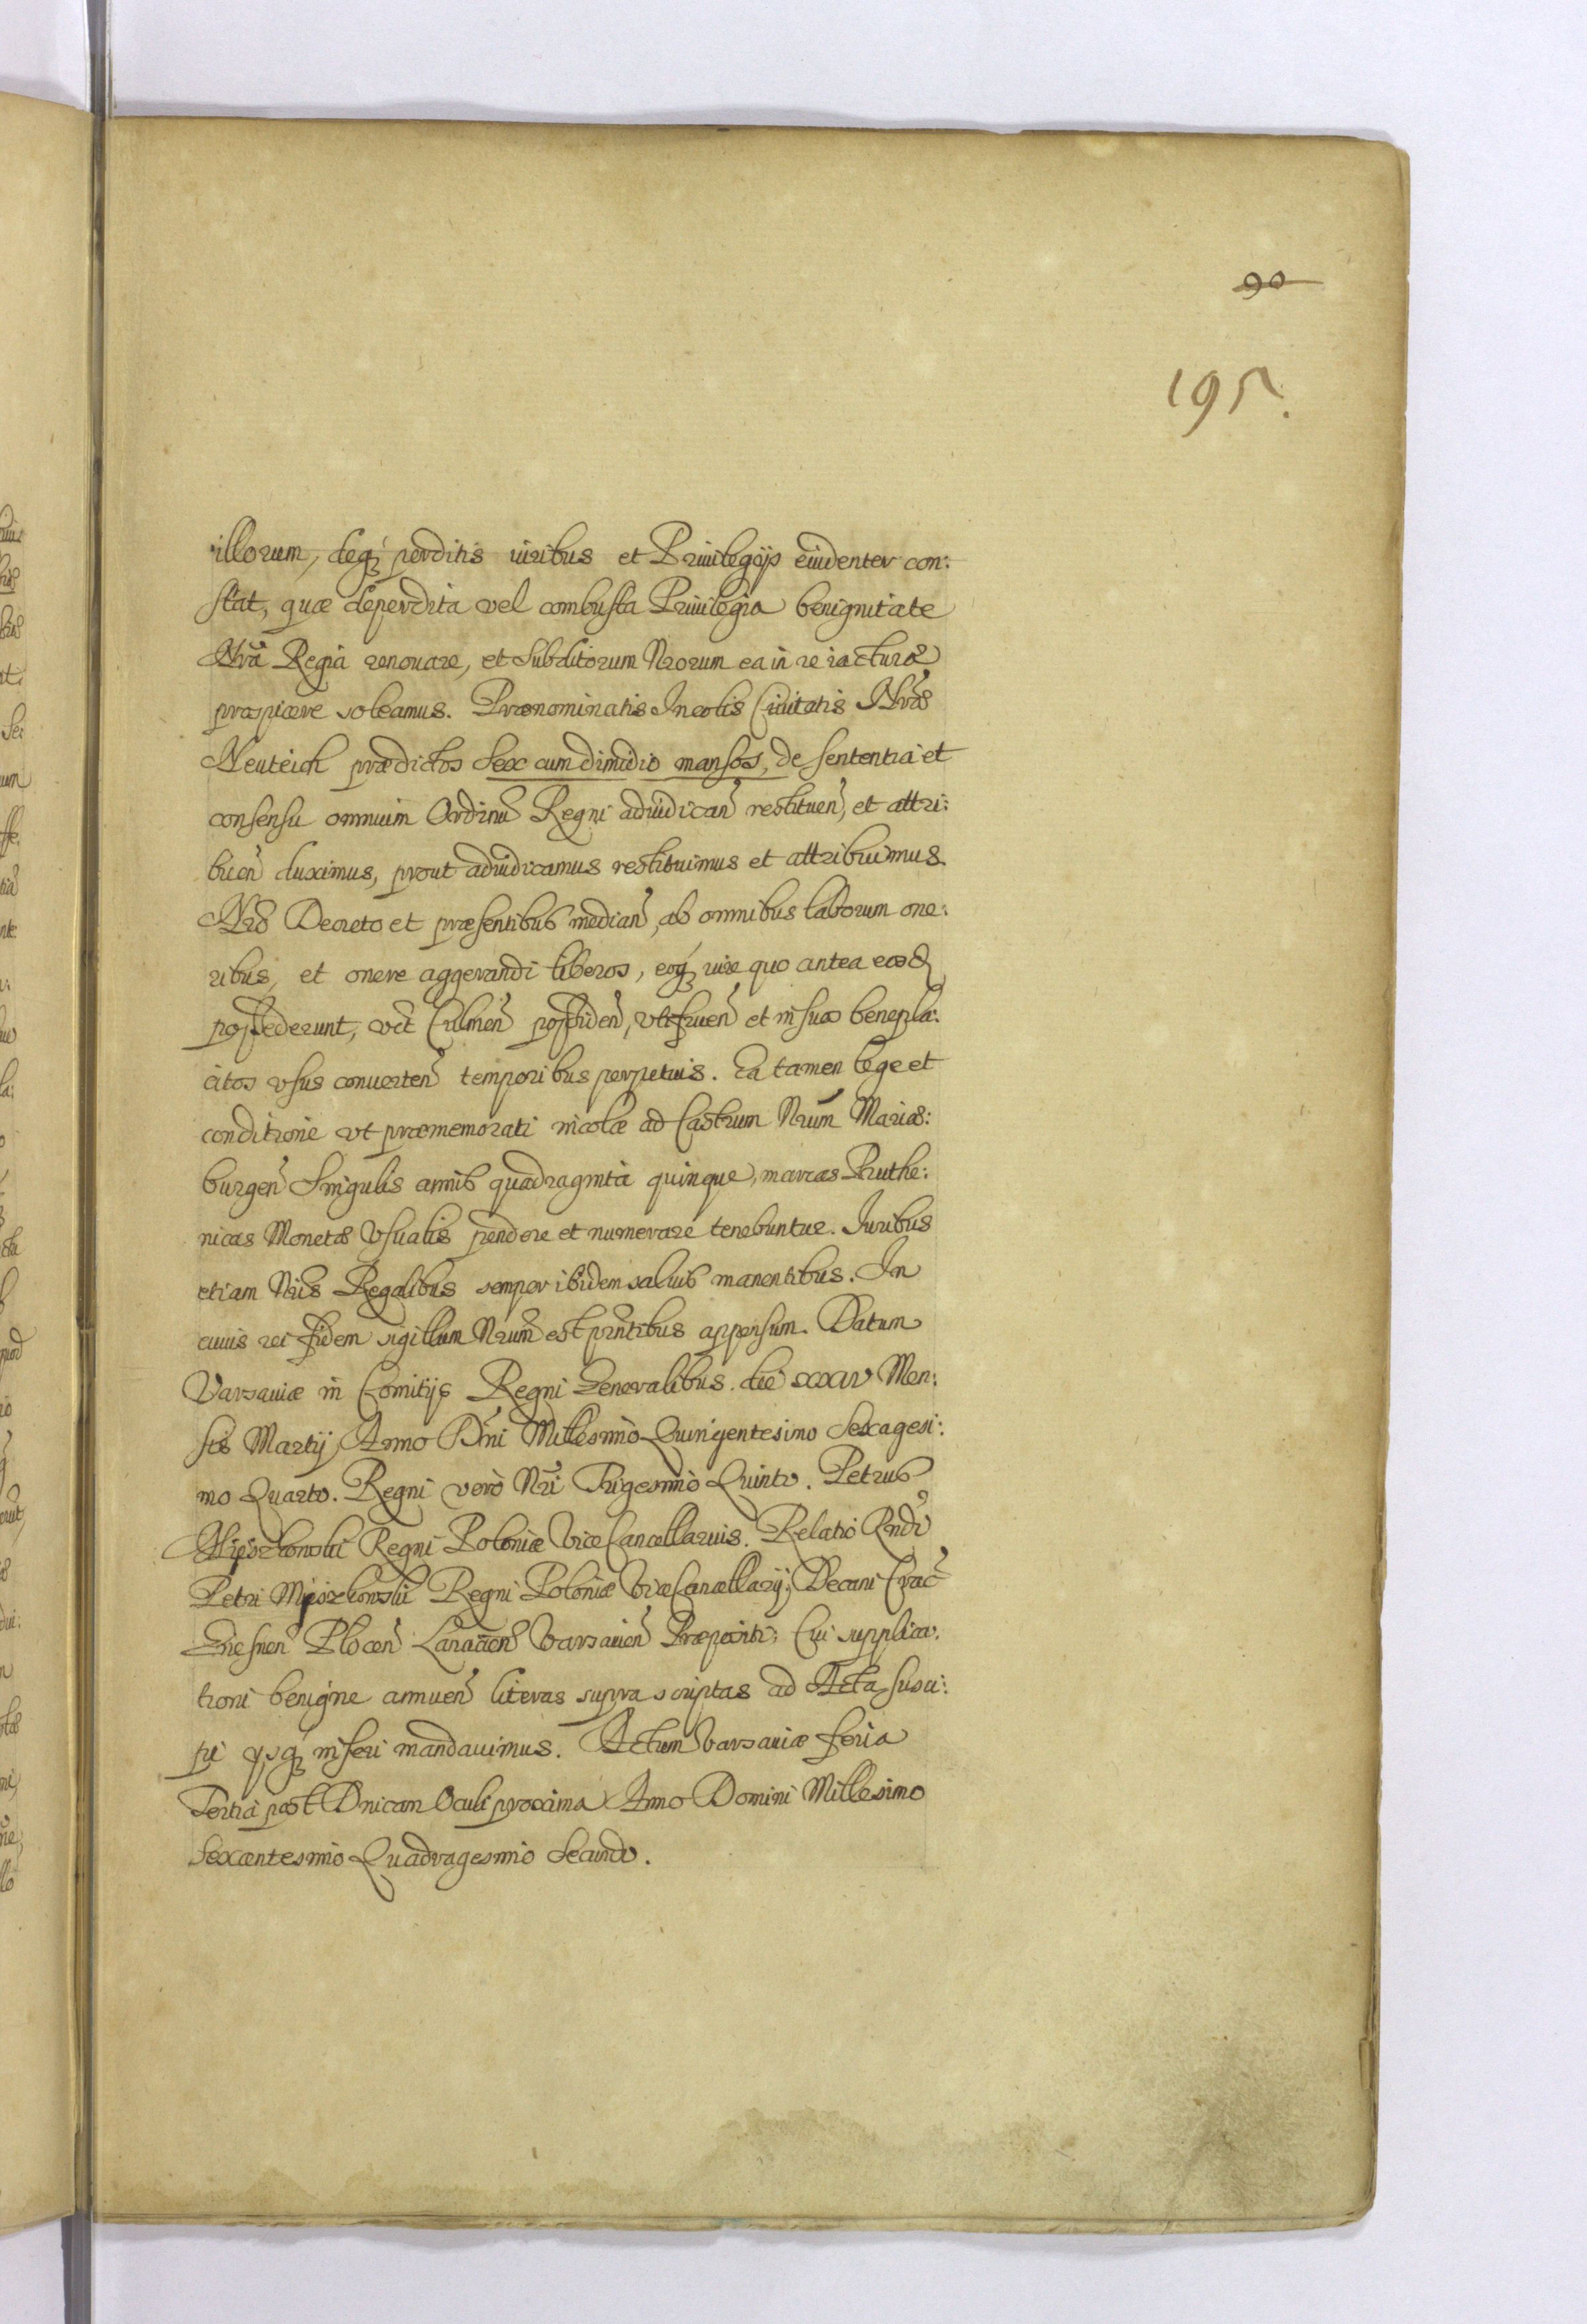 90
195.
illorum, deq́ꝫ perditis iuribus et Priuilegijs euidenter con:
stat, quæ deperdita vel combusta Priuilegia benignitate
Nrã Regia renouare, et Subditorum Nrorum ea in re iacturæ
prospicere soleamus. Prænominatis Incolis Ciuitatis Nræ
Neuteich prædictos Sex cum dimidio mansos, de sententia et
consensu omnium Ordinũ Regni adiudicañ restitueñ, et attri:
bueñ duximus, prout adiudicamus restituimus et attribuimus
Nrõ Decreto et præsentibus mediañ, ab omnibus laborum one:
ribus, et onere aggerandi liberos, eoq́ꝫ iure quo antea eosd
possederunt, vẽt Culmeñ possideñ, vtifrueñ et in suos benepla:
citos vsus conuerteñ temporibus perpetuis. Ea tamen lege et
conditione vt præmemorati incolæ ad Castrum Nrum̃ Mariæ:
burgeñ Singulis annis quadraginta quinque, marcas Pruthe:
nicas Monetæ Vsualis pendere et numerare tenebuntur. Iuribus
etiam Nris̃ Regalibus semper ibidem saluis manentibus. In
cuius rei fidem sigillum Nrum̃ est prñtibus appensum. Datum
Varsauiæ in Comitijs Regni Generalibus. die xxv Men:
sis Martij, Anno Dñi Millesimo Quingentesimo Sexagesi:
mo Quarto. Regni verò Nrĩ Trigesimo Quinto. Petrus
Mÿszkowski Regni Poloniæ Vice Cancellarius. Relatio Rndĩ
Petri Mÿszkowski Regni Poloniæ ViceCancellarij, Decani Crac̃
Gnesneñ Ploceñ Lanacieñ Varsauieñ Præpositi; Cui supplica:
tioni benigne annueñ literas supra scriptas ad Acta susci:
pi ÿsq́ꝫ inseri mandauimus. Actum Varsauiæ feria
Tertia post Dnicam Oculi proxima Anno Domini Millesimo
Sexcentesimo Quadragesimo Secundo.